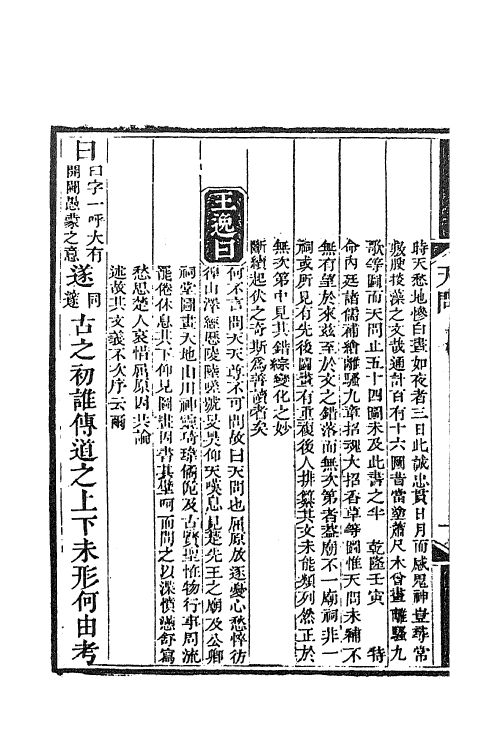 天問
時天愁地慘白晝如夜者三日此誠忠貫日月而感鬼神豈尋常
敷腴掞藻之文哉通計百有十六圖昔當塗蕭尺木曾畫離騷九
歌等圖而天問止五十四圖未及此書之半　乾隆壬寅　特
命內廷諸儒補繪離騷九章招魂大招香草等圖惟天問未補不
無有望於來茲至於文之錯落而無次第者蓋廟不一廟祠非一
祠或所見有先後圖畫有重複後人排纂其文未能類列然正於
無次第中見其錯綜變化之妙
斷續起伏之奇斯為善讀者矣
王逸曰
何不言問天天尊不可問故曰天問也屈原放逐憂心愁悴彷
徨山澤經歷陵陸嗟號旻昊仰天嘆息見楚先王之廟及公卿
祠堂圖畫天地山川神靈琦瑋僪佹及古賢聖怪物行事周流
罷倦休息其下仰見圖畫因書其壁呵而問之以渫憤懣舒寫
愁思楚人哀惜屈原因共論
述故其文義不次序云爾
曰曰字一呼大有開闢愚蒙之意遂同邃古之初誰傳道之上下未形何由考